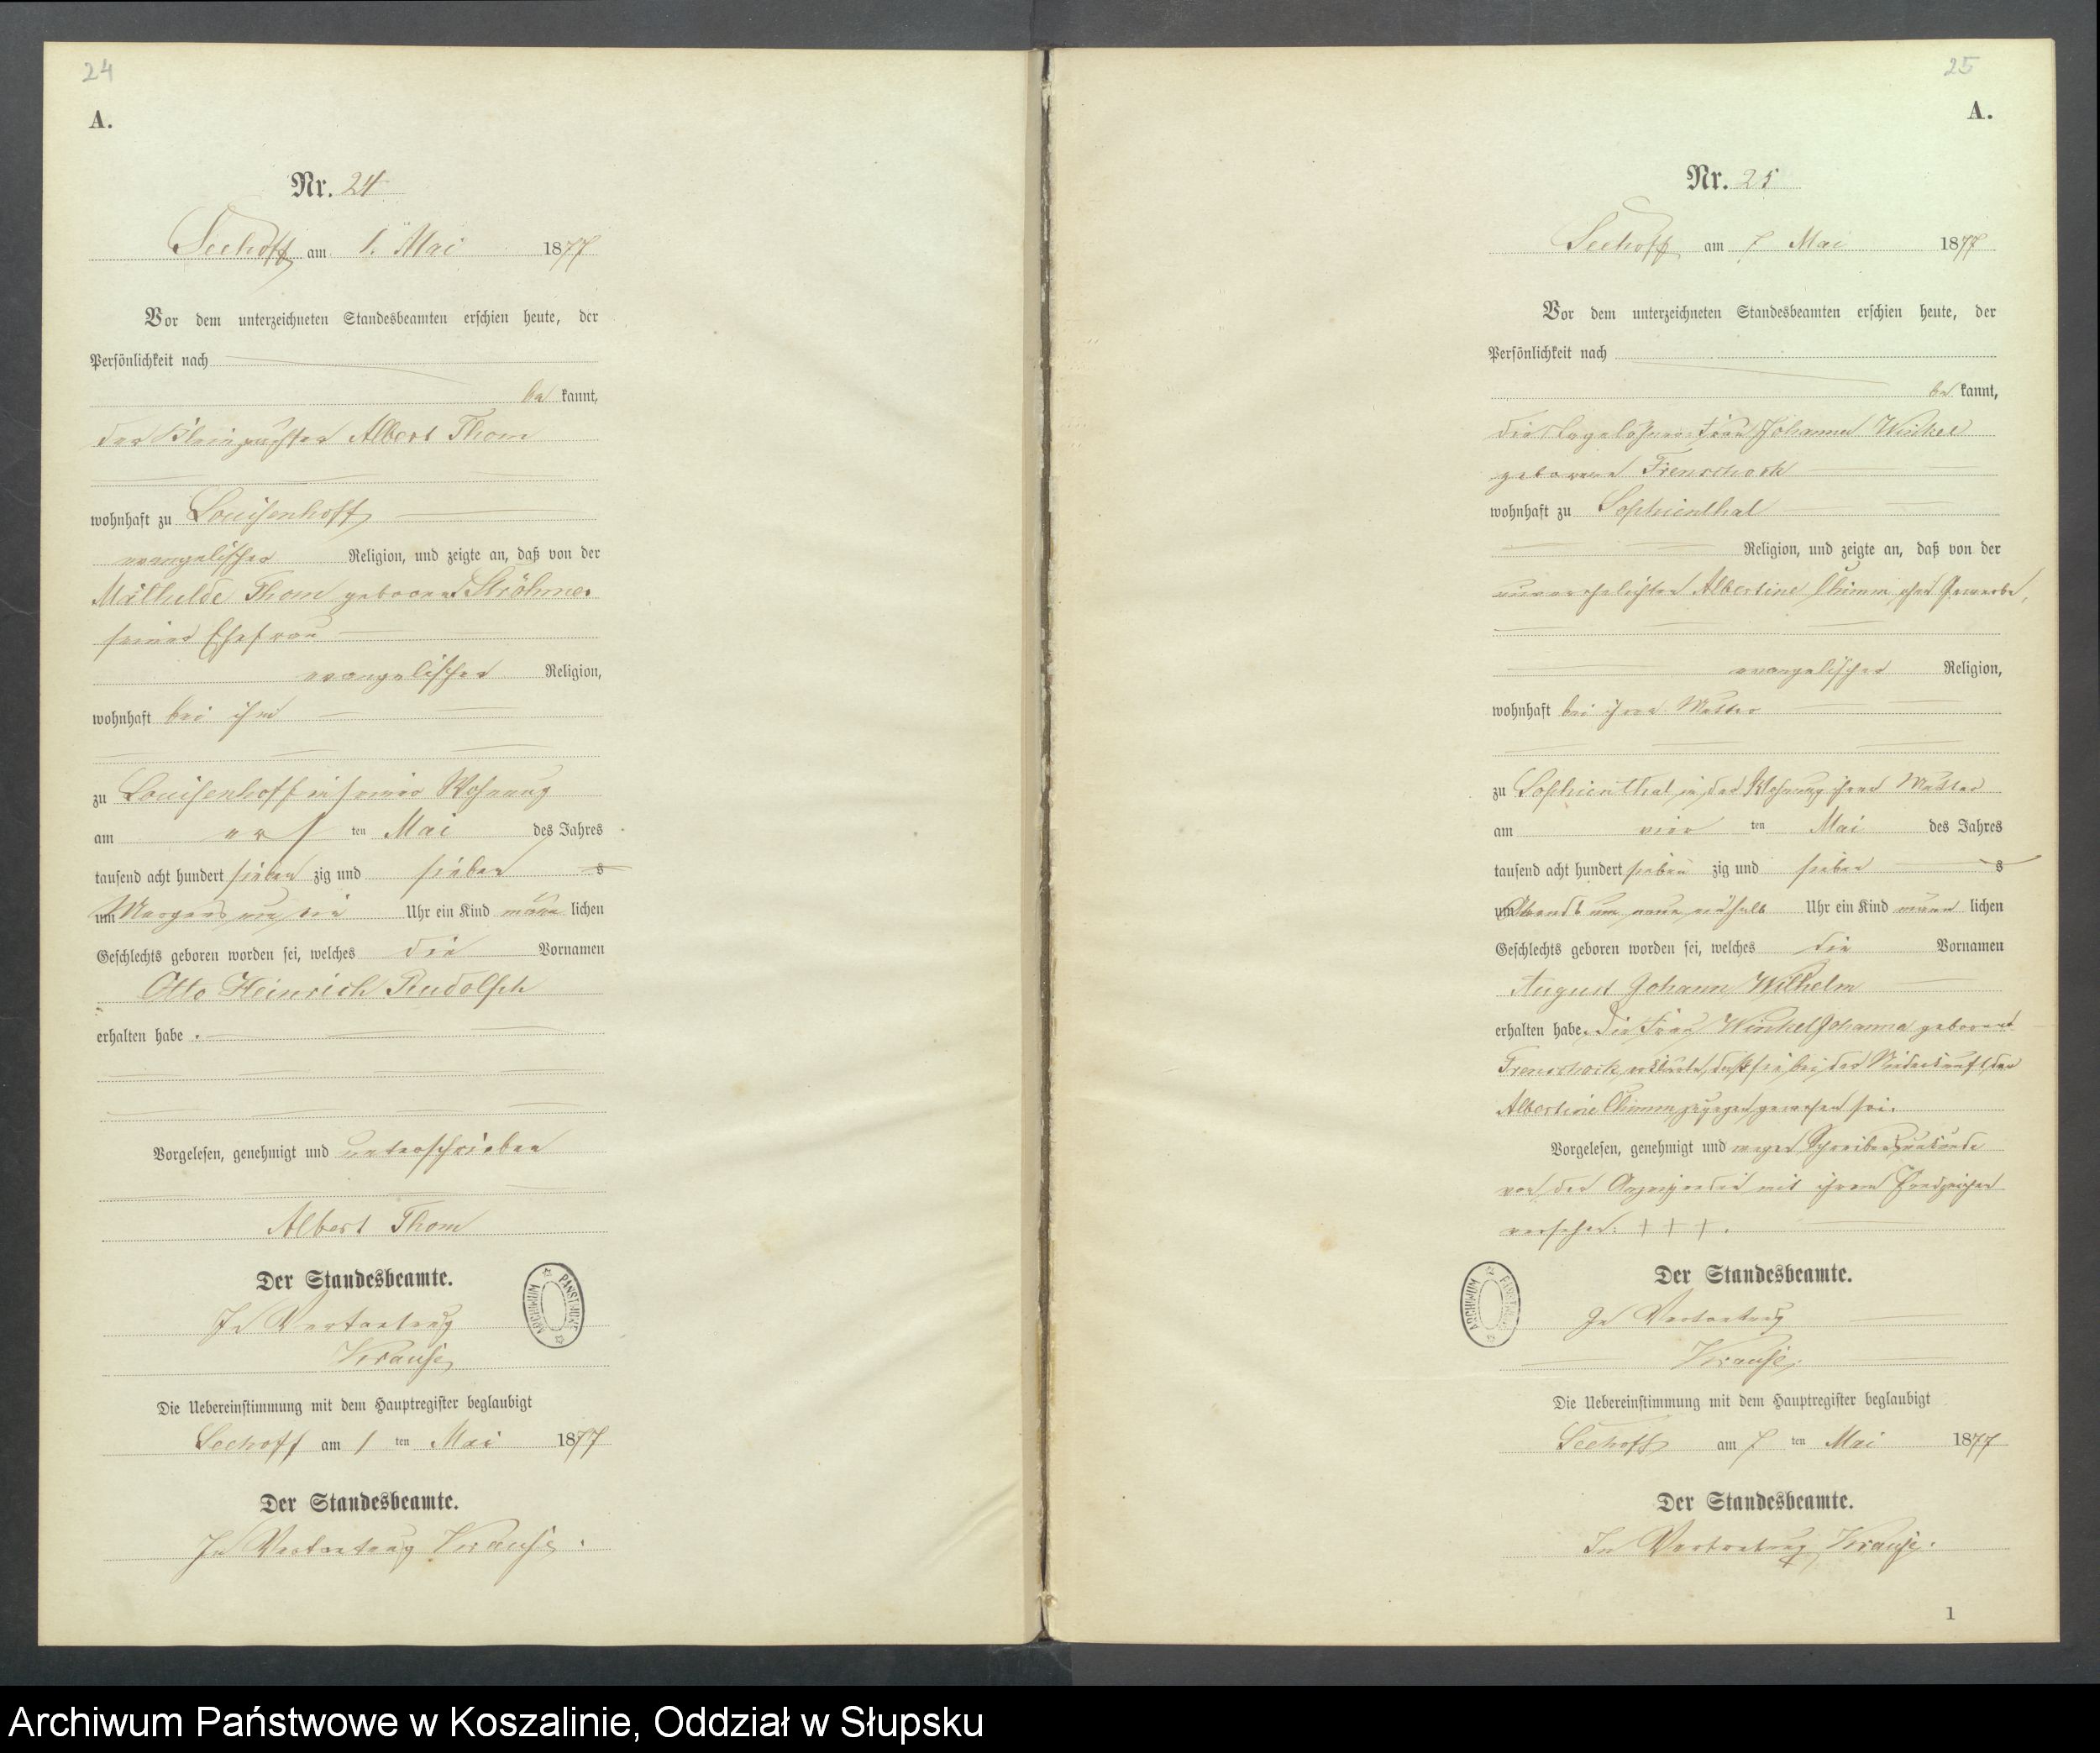 24
A.
Nr. 24
Seehoff am 1. Mai 1877
Vor dem unterzeichneten Standesbeamten erschien heute, der
Persönlichkeit nach
be kannt,
der Kleinpächter Albert Thom
wohnhaft zu Louisenhoff
evangelischer Religion, und zeigte an, daß von der
Mathilde Thom geborene Ströhme.
seiner Ehefrau
evangelischer Religion,
wohnhaft bei ihm
zu Louisenhoff in seiner Wohnung
am ers ten Mai des Jahres
tausend acht hundert sieben zig und sieben s
um Morgens um Uhr ein Kind männ lichen
Geschlechts geboren worden sei, welches die Vornamen
Otto Heinrich Rudolph
erhalten habe.
Vorgelesen, genehmigt und unterschrieben
Albert Thom
Der Standesbeamte.
In Vertretung
Krause
Die Uebereinstimmung mit dem Hauptregister beglaubigt
Seehoff am 1 ten Mai 1877
Der Standesbeamte.
In Vertretung Krause.
ARCHIWUM PAŃSTWOWE
25
A.
Nr. 25
Seehoff am 7 Mai 1877
Vor dem unterzeichneten Standesbeamten erschien heute, der
Persönlichkeit nach
be kannt,
die Tagelöhner Frau Johanna Winkel
geborene
wohnhaft zu Sophienthal
Religion, und zeigte an, daß von der
unverehelichten Albertine ohne Gewerbe,
evangelischer Religion,
wohnhaft bei ihrer Mutter
zu Sophienthal in der Wohnung ihrer Mutter
am vier ten Mai des Jahres
tausend acht hundert sieben zig und sieben s
um Abends um neun einhalb Uhr ein Kind männ lichen
Geschlechts geboren worden sei, welches die Vornamen
August Johann Wilhelm
erhalten habe. Die Frau Winkel Johanna geborene
erklärte, daß sie bei der Niederkunft der
Albertine zugegen gewesen sei.
Vorgelesen, genehmigt und wegen Schreibensunkunde
von der Anzeigenden mit ihrem Handzeichen
versehen. + + + .
Der Standesbeamte.
In Vertretung
Krause.
Die Uebereinstimmung mit dem Hauptregister beglaubigt
Seehoff am 7 ten Mai 1877
Der Standesbeamte.
In Vertretung Krause.
ARCHIWUM PAŃSTWOWE
1
Archiwum Państwowe w Koszalinie, Oddział w Słupsku